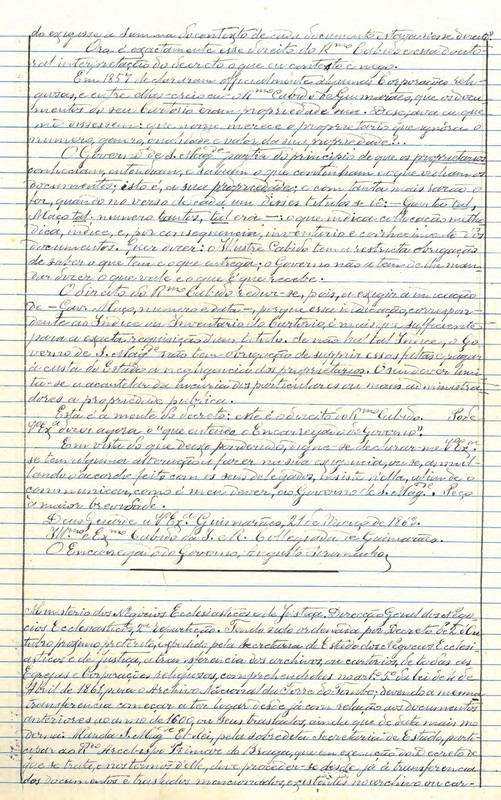 do exigisse a summa do contexto de cada documento estava nesse direito?
Ora é exactamente esse direito do Rmo Cabido e essa doctoral interpretação do decreto o que eu contesto e nego.
Em 1857 declararam officialmente algumas Corporações religiosas, e entre ellas creio eu o Rmo Cabido de Guimarães, que os documentos do seu Cartorio eram propriedade sua. Desejava eu que me dissessem que nome merece o proprietario que ignora o numero, genero, qualidade e valor da sua propriedade?..
O Governo de S. Mage partia do principio de que os proprietarios conheciam, entendiam, e sabiam o que continham o que vedavam os documentos, isto é, a sua propriedade; e com tanta mais razão o fez, quando no verso de cada um desses titulos se lê: — Gaveta tal, Maço tal, numero tantos, tal era —: o que indica collocação methodica, indice, e, por consequencia, inventario e conhecimento dos documentos. Quer dizer: o Illustre Cabido tem a restricta obrigação de saber o que tem e o que entrega; o Governo não a tem de lhe mandar dizer o que pede e o que é que recebe.
O direito do Rmo Cabido reduz-se, pois, a exigir a indicação de — Gav. Maço, numero e datas —, porque essa indicação, correspondente ao Indice ou Inventario do Cartorio, é mais que sufficiente para a exacta requisição d'um titulo. Se não ha tal Indice, o Governo de S. Mage não tem obrigação de supprir essas faltas e pagar á custa do Estado a negligencia dos proprietarios. O seu dever limita-se a acautelar da incuria dos particulares ou maos administradores a propriedade publica.
Esta é a mente do decreto: este é o direito do Rmo Cabido. Pode V.Exa dizer agora o "que entende o Encarregado do Governo".
Em vista do que deixo ponderado, digne-se declarar-me V.Exa se tem alguma alteração a fazer na sua exigencia, ou se, annullando o acordo feito com os seus delegados, insiste n'ella, afim de o communicar, como é meu dever, ao Governo de S. Mage. Peço a maior brevidade.
Deus Guarde a V.Exa. Guimarães, 21 de Março de 1862.
Illmo e Exmo Cabido da I. e R. Collegiada de Guimarães.
O Encarregado do Governo, Augusto Soromenho,
Ministerio dos Negocios Ecclesiasticos e de Justiça, Direcção Geral dos Negocios Ecclesiasticos, 2a repartição. Tendo sido ordenado, por Decreto de 2 d'Outubro proximo preterito, expedido pela Secretaria de Estado dos Negocios Ecclesiasticos e de Justiça, a transferencia dos archivos, ou cartorios, de todas as Egrejas e Corporações religiosas, comprehendidas no arto 5o da Lei de 4 de Abril de 1861, para o Archivo Nacional da Torre do Tombo; devendo a mesma transferencia começar a ter logar desde já com relação aos documentos anteriores ao anno de 1600, ou seus traslados, ainda que de data mais moderna: Manda S. Mage El-Rei, pela sobredita Secretaria de Estado, participar ao Rmo Arcebispo Primaz de Braga, que em execução do Decreto de que se trata, e nos termos d'elle, deve proceder-se desde já á transferencia dos documentos e traslados mencionados, existentes no archivo ou car-